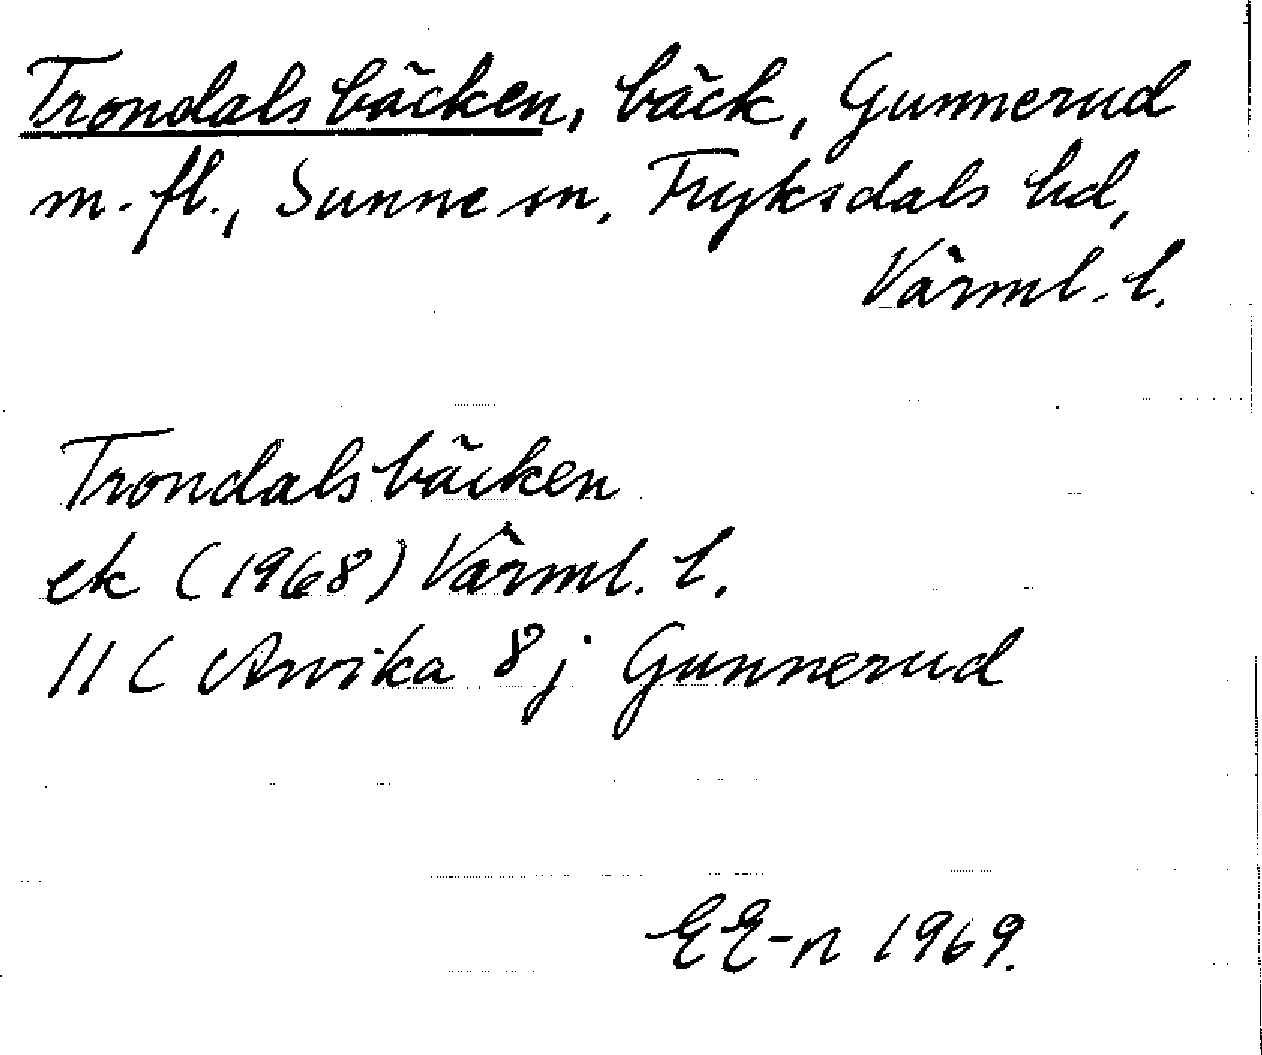 Trondalsbäcken, bäck, Gunnerud
m. fl., Sunne sn, Fryksdals hd,
Värml. l.
Trondalsbäcken
ek (1968) Värml. l.
11C Arvika 8j Gunnerud
EE-n 1969.